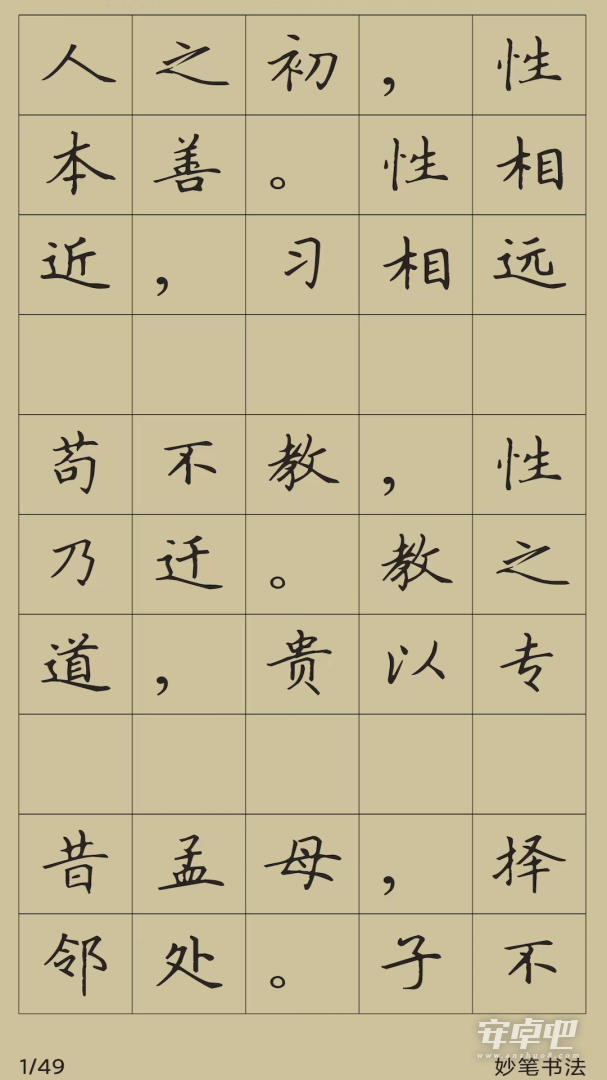 人之初，性
本善。性相
近，习相远
苟不教，性
乃迁。教之
道，贵以专
昔孟母，择
邻处。子不
安卓吧
www.anzhuo8.com
1/49
妙笔书法